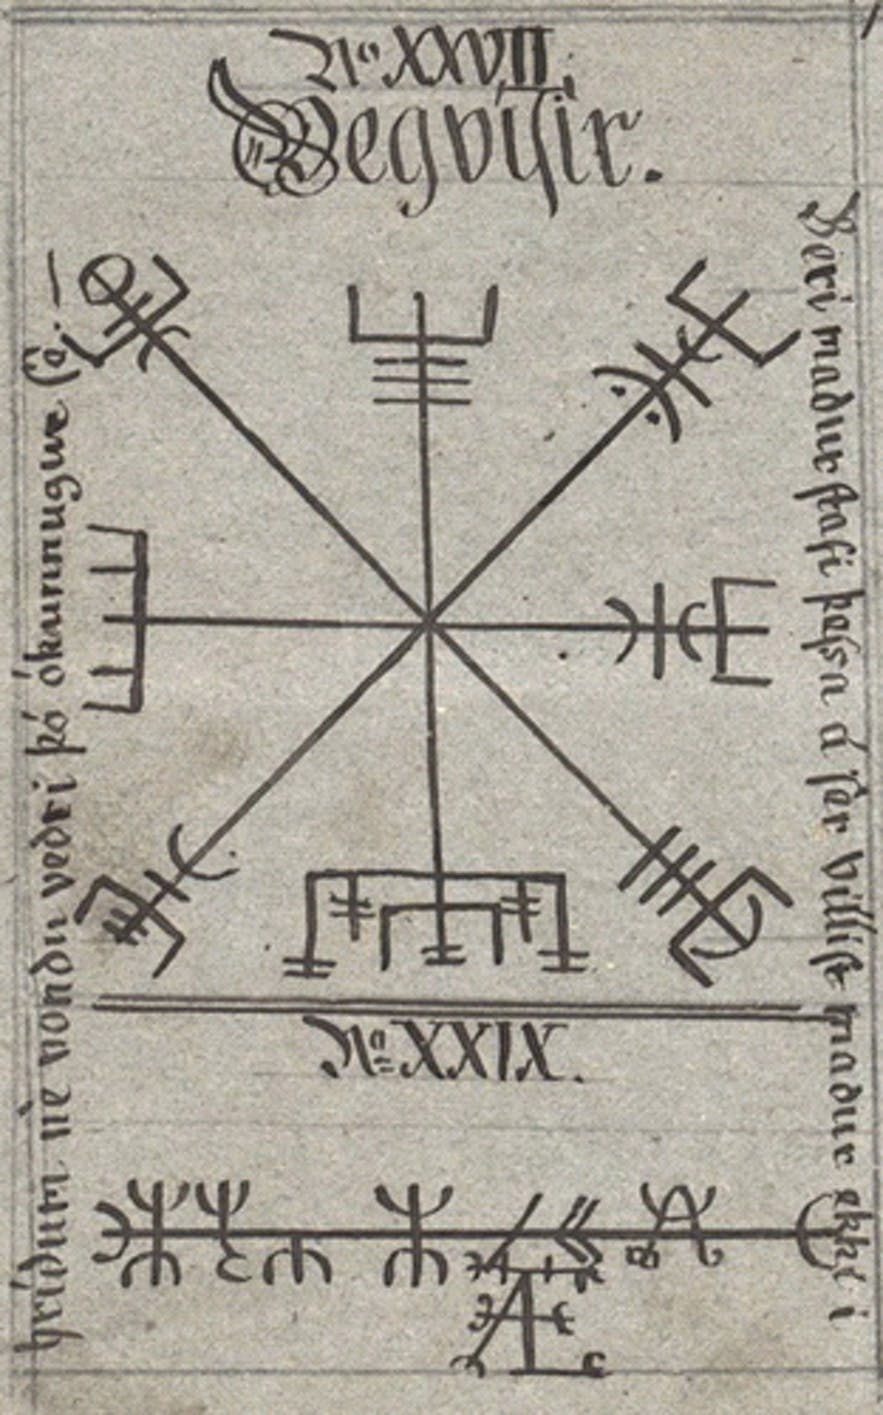 No XXVII.
Vegvisir.
Beri madur stafi þessa á sér villist madur ekki i
hrídum né vondu vedri þó ókunnugur sé. —
No XXIX.